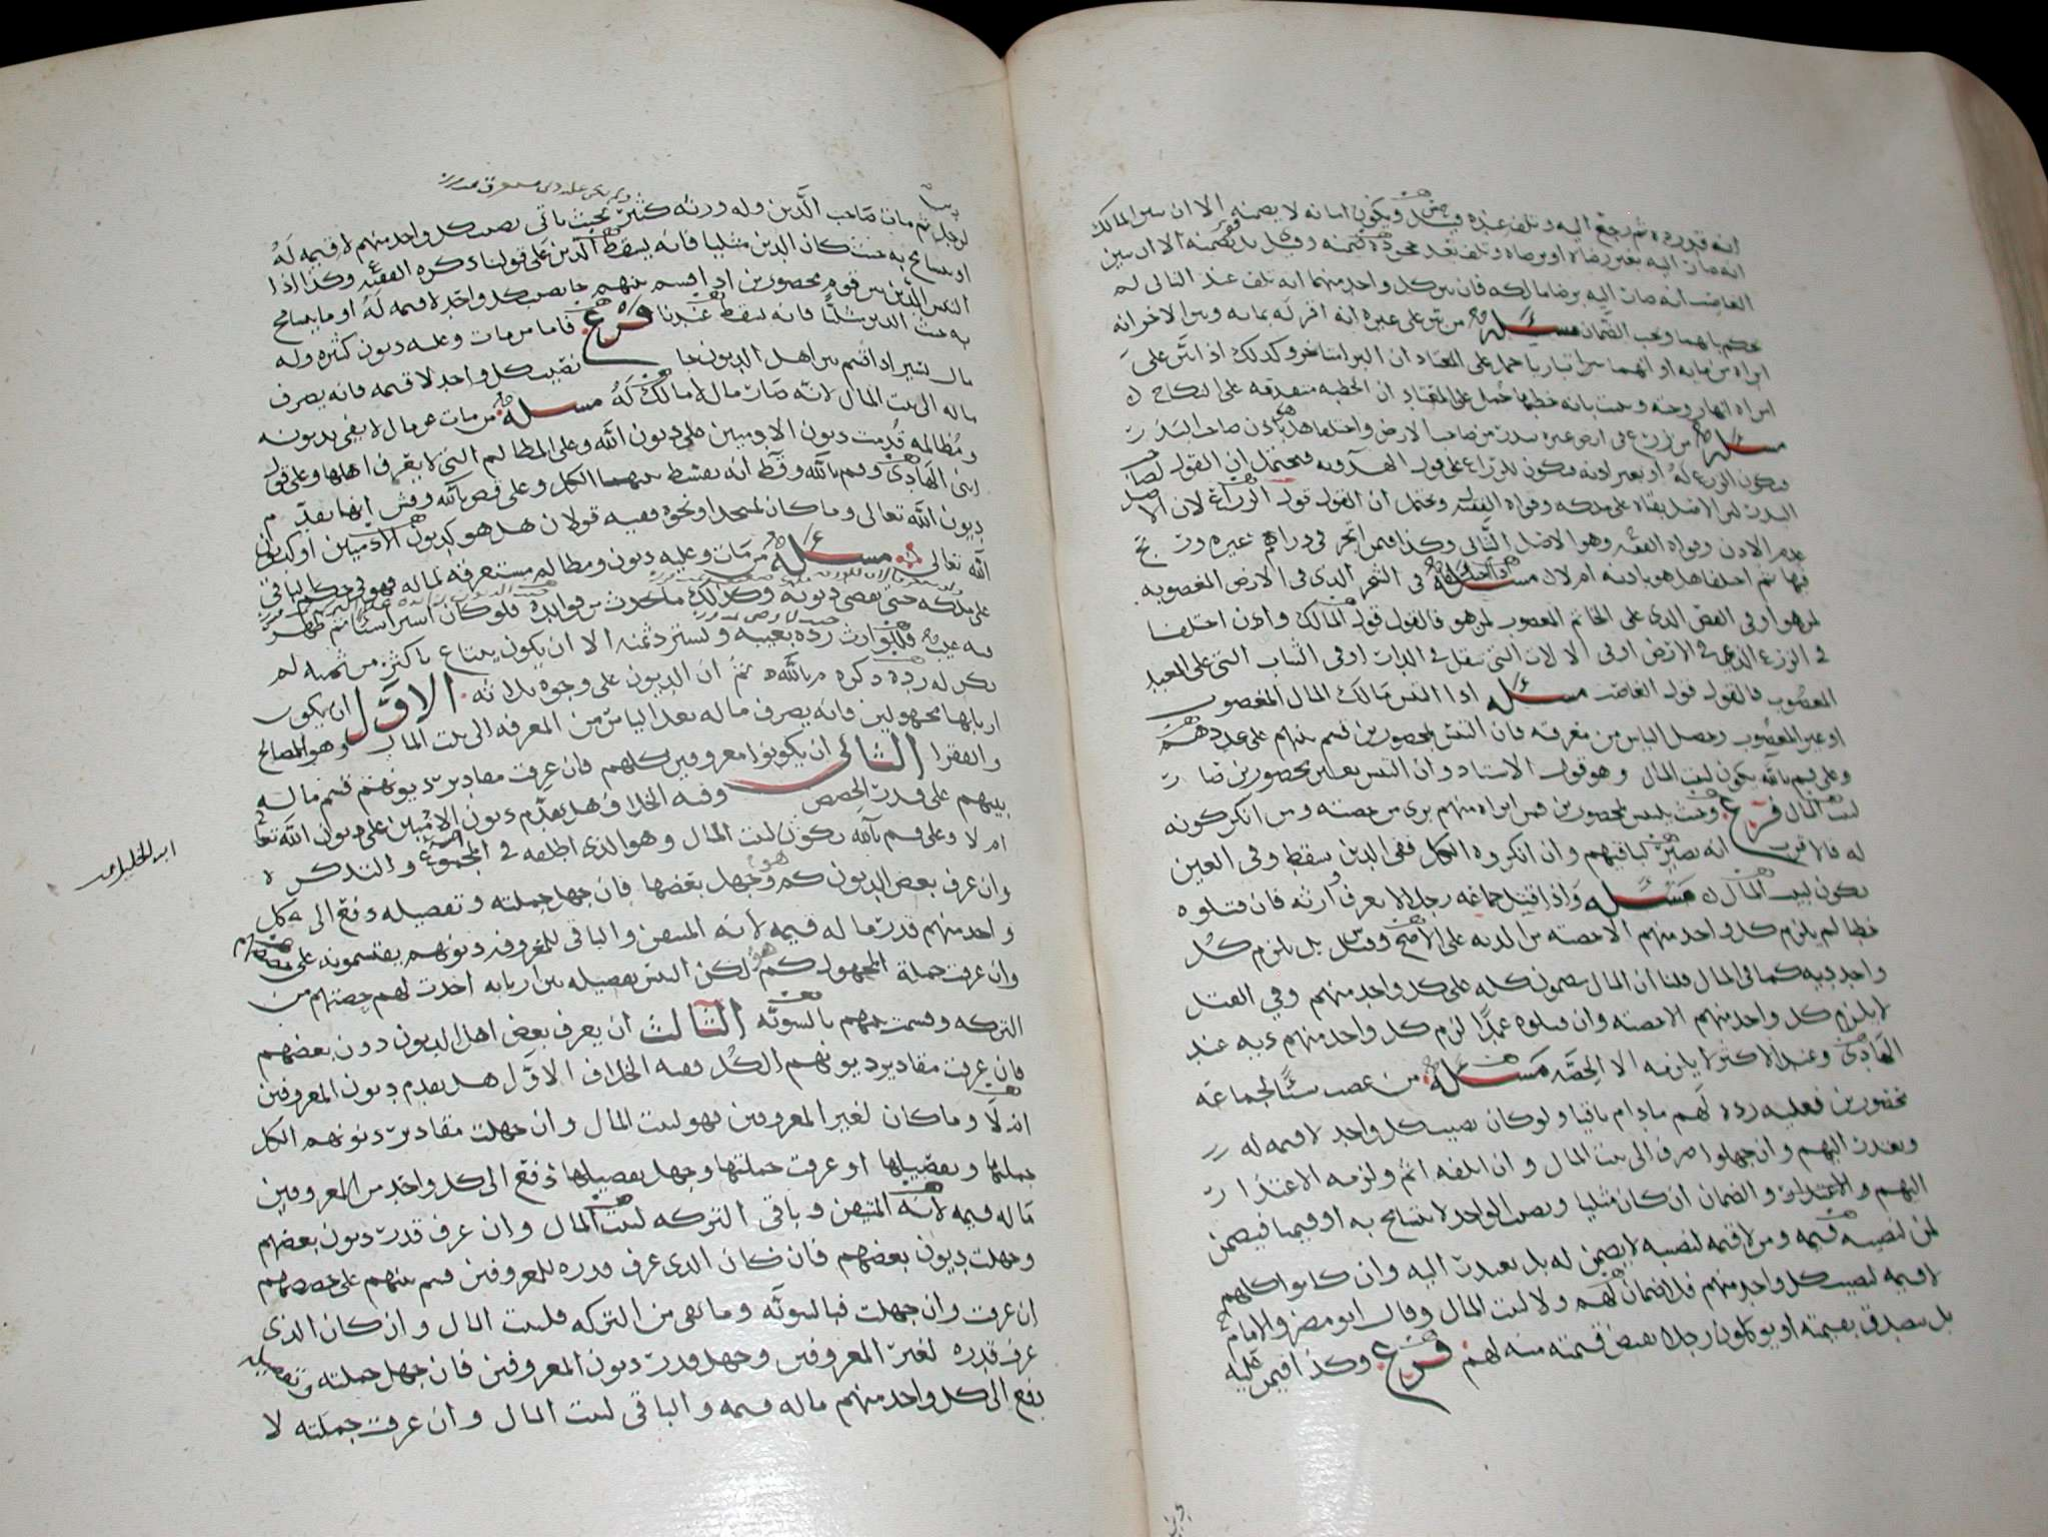 انه قد رده ثم رجع اليه وتلف عنده وقيل ويكون امانه لا يضمنه الا ان بين المالك
انه صار اليه بغير رضاه او برضاه وتلف بعد جحوده ضمنه وقيل بل يضمنه الا ان بين
الغاصب انه صار اليه برضا مالكه فان بين كل واحد منهما انه تلف عند الثاني لم
يحكم بايهما ويجب الضمان مسئله من بين على غيره انه اقر له بمايه وبين الاخر انه
ابراه من مايه او انهما تباريا حمل على المعتاد ان البرا متاخر وكذلك اذا بين على
امراه انها زوجته وبينت بانه خطبها حمل على المعتاد ان الخطبه متقدمه على النكاح
مسئله من زرع في ارض غيره ببذر من صاحب الارض واختلفا هل باذن صاحب البذر
فيكون الزرع له او بغير اذنه فيكون للزراع على قول الهدويه فيحتمل ان القول لصاحب
البذر لان الاصل بقاه على ملكه وقواه الفقيه ويحتمل ان القول قول الزراع لان الاصل
عدم الاذن وقواه الفقيه وهو الاصل الثاني وكذا فيمن اتجر في دراهم غيره وربح
فيها ثم اختلفا هل هو باذنه ام لا مسئله واذا اختلفا في الثمر الذي في الارض المغصوبه
لمن هو او في الفص الذي على الخاتم المغصوب لمن هو فالقول قول المالك وان اختلفا
في الزرع الذي في الارض او في الالات التي تنقل في الدار او في الثياب التي على العبد
المغصوب فالقول قول الغاصب مسئله اذا التبس مالك المال المغصوب
او غير المغصوب وحصل الياس من معرفته فان التبس بمحصورين قسم بينهم على عددهم
وعلى م بالله يكون لبيت المال وهو قول الاستاد وان التبس بغير محصورين صار
لبيت المال فرع وحيث يلتبس بمحصورين فمن ابراه منهم برئ من حصته ومن انكر كونه
له فالاقرب انه يصير لباقيهم وان انكروه الكل ففي الدين يسقط وفي العين
يكون لبيت المال مسئله واذا قتل جماعه رجلا لا يعرف وارثه فان قتلوه
خطا لم يلزم كل واحد منهم الا حصته من الديه على الاصح وقيل بل يلزم كل
واحد ديه كما في المال قلنا ان المال مضمون كله على كل واحد منهم وفي القتل
لا يلزم كل واحد منهم الا حصته وان قتلوه عمدا لزم كل واحد منهم ديه عند
الهادي وعند الاكثر لا يلزمه الا الحصه مسئله من غصب شيئا لجماعه
محصورين فعليه رده لهم مادام باقيا ولو كان نصيب كل واحد لا قيمه له
ويعتذر اليهم وان جهلوا صرف الى بيت المال وان اتلفه اثم ولزمه الاعتذار
اليهم والاعتذار والضمان ان كان مثليا ونصيب الواحد لا يتسامح به او قيميا فيضمن
لمن لنصيبه قيمه ومن لا قيمه لنصيبه لا يضمن له بل يعتذر اليه وان كانوا كلهم
لا قيمه لنصيب كل واحد منهم فلا ضمان لهم ولا لبيت المال وقال ابو مضر والامام
بل يتصدق بقيمته او يوكلون رجلا يقبض قيمته منه لهم فرع وكذا فيمن عليه
لرجل ثم مات صاحب الدين وله ورثه كثير بحيث ياتي نصيب كل واحد منهم لا قيمه له
او يتسامح به حيث كان الدين مثليا فانه يسقط الدين على قولنا ذكره الفقيه وكذا اذا
التبس الدين بين قوم محصورين اذا قسم بينهم جا نصيب كل واحد لا قيمه له او ما يتسامح
به حيث الدين مثليا فانه يسقط عندنا فرع فاما من مات وعليه ديون كثيره وله
مال يسير اذا قسم بين اهل الديون جا نصيب كل واحد لا قيمه فانه يصرف
ماله الى بيت المال لانه صار مال لا مالك له مسئله من مات عن مال لا يفي بديونه
ومظالمه قدمت ديون الادميين على ديون الله وعلى المظالم التي لا يعرف اهلها وعلى قول
ابني الهادي و م بالله و قط انه يقسط بينهما الكل وعلى قم بالله و قش انها تقدم
ديون الله تعالى وما كان لمسجد او نحوه ففيه قولان هل هو كديون الادميين او كديون
الله تعالى مسئله من مات وعليه ديون ومظالم مستغرقه لماله فهو في حكم الباقي
على ملكه حتى تقضى ديونه وكذلك ما حدث من فوايده فلو كان اشترا شيئا ثم ظهر
فيه عيب فللوارث رده بعيبه ويسترد ثمنه الا ان يكون يبتاع باكثر من ثمنه لم
يكن له رده ذكره م بالله ثم ان الديون على وجوه ثلاثه الاول ان يكون
اربابها مجهولين فانه يصرف ماله بعد الياس من المعرفه الى بيت المال وهو المصالح
والفقرا الثاني ان يكونوا معروفين كلهم فان عرفت مقادير ديونهم قسم ماله
بينهم على قدر الحصص وفيه الخلاف هل يقدم ديون الادميين على ديون الله تعالى
ام لا وعلى قم بالله يكون لبيت المال وهو الذي اطلقه في المجموع والتذكره
وان عرف بعض الديون كم هو وجهل بعضها فان جهل جملته وتفصيله دفع الى كل
واحد منهم قدر ما له قيمه لانه المتيقن والباقي للمعروفه ديونهم يقتسمونه على حصصهم
وان عرفت جملة المجهول كم هو لكن التبس تفصيله بين اربابه اخذت لهم حصتهم من
التركه وقسمت بينهم بالسويه الثالث ان يعرف بعض اهل الديون دون بعضهم
فان عرفت مقادير ديونهم الكل ففيه الخلاف الاول هل يقدم ديون المعروفين
ام لا وما كان لغير المعروفين فهو لبيت المال وان جهلت مقادير ديونهم الكل
جملتها وتفصيلها او عرفت جملتها وجهل تفصيلها دفع الى كل واحد من المعروفين
ما له قيمه لانه المتيقن وباقي التركه لبيت المال وان عرف قدر ديون بعضهم
وجهلت ديون بعضهم فان كان الذي عرف قدره للمعروفين قسم بينهم على حصصهم
ان عرفت وان جهلت فبالسويه وما بقي من التركه فلبيت المال وان كان الذي
عرف قدره لغير المعروفين وجهل قدر ديون المعروفين فان جهل جملته وتفصيله
دفع الى كل واحد منهم ما له قيمه والباقي لبيت المال وان عرفت جملته لا